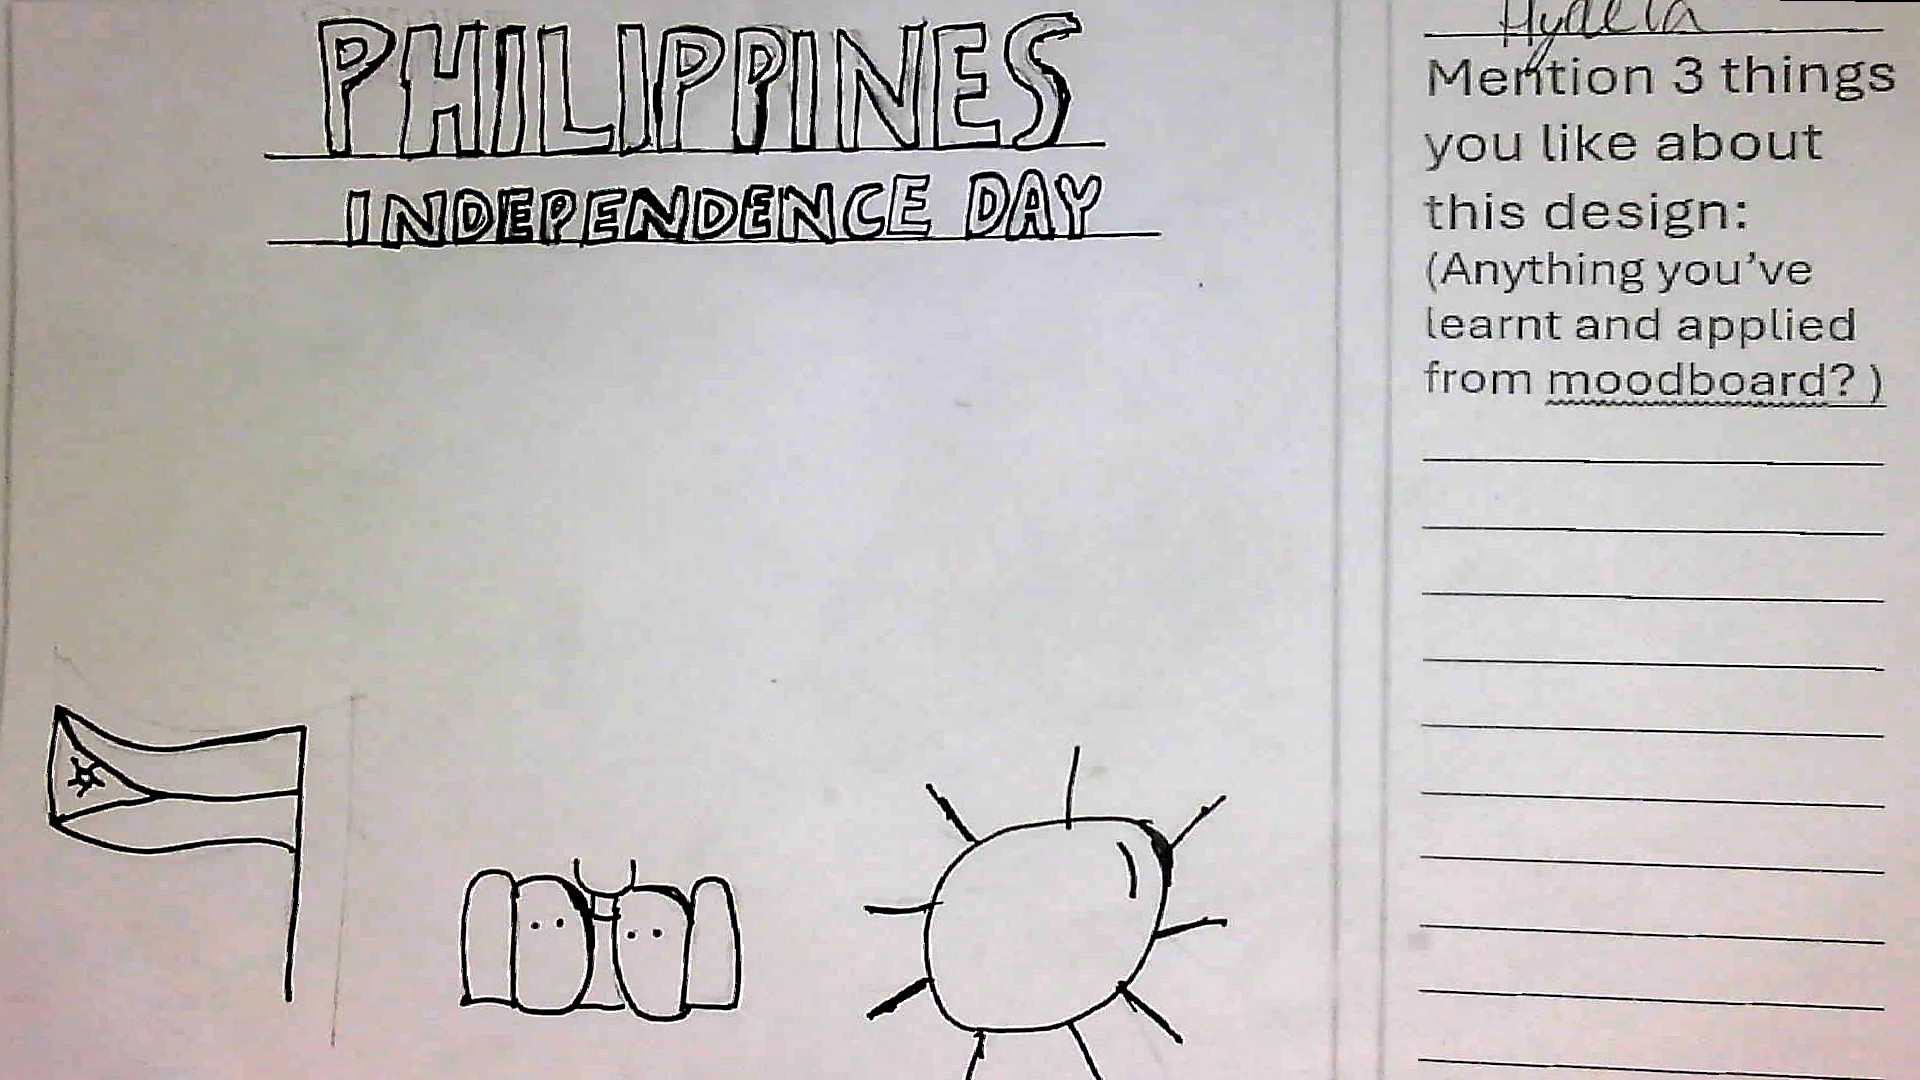 PHILIPPINES
INDEPENDENCE DAY
Mention 3 things
you like about
this design:
(Anything you've
learnt and applied
from moodboard? )